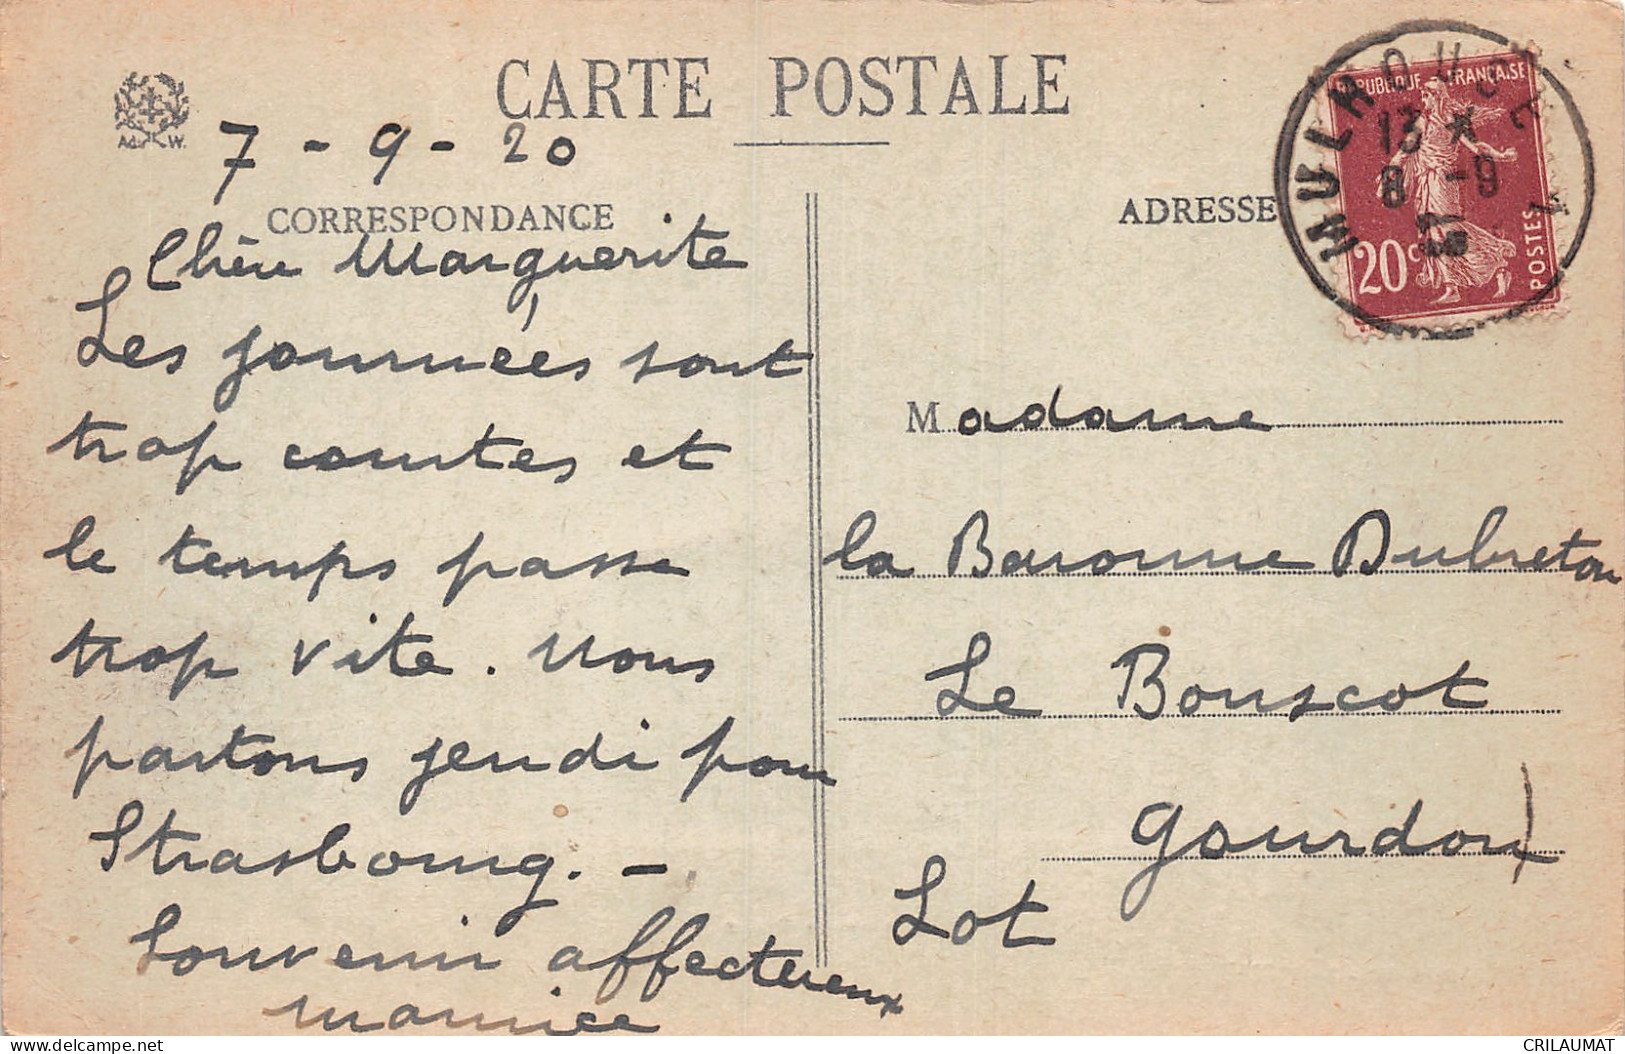 CARTE POSTALE
Ad. W.
7 - 9 - 20
CORRESPONDANCE
Chère Marguerite
Les journées sont
trop courtes et
le temps passe
trop vite. Nous
partons jeudi pour
Strasbourg. -
Souvenir affectueux
Maurice
ADRESSE
REPUBLIQUE FRANÇAISE
20c
POSTES
MULHOUSE
13 *
8 -9
Madame
la Baronne Dubreton
Le Bouscot
Gourdon
Lot
CRILAUMAT